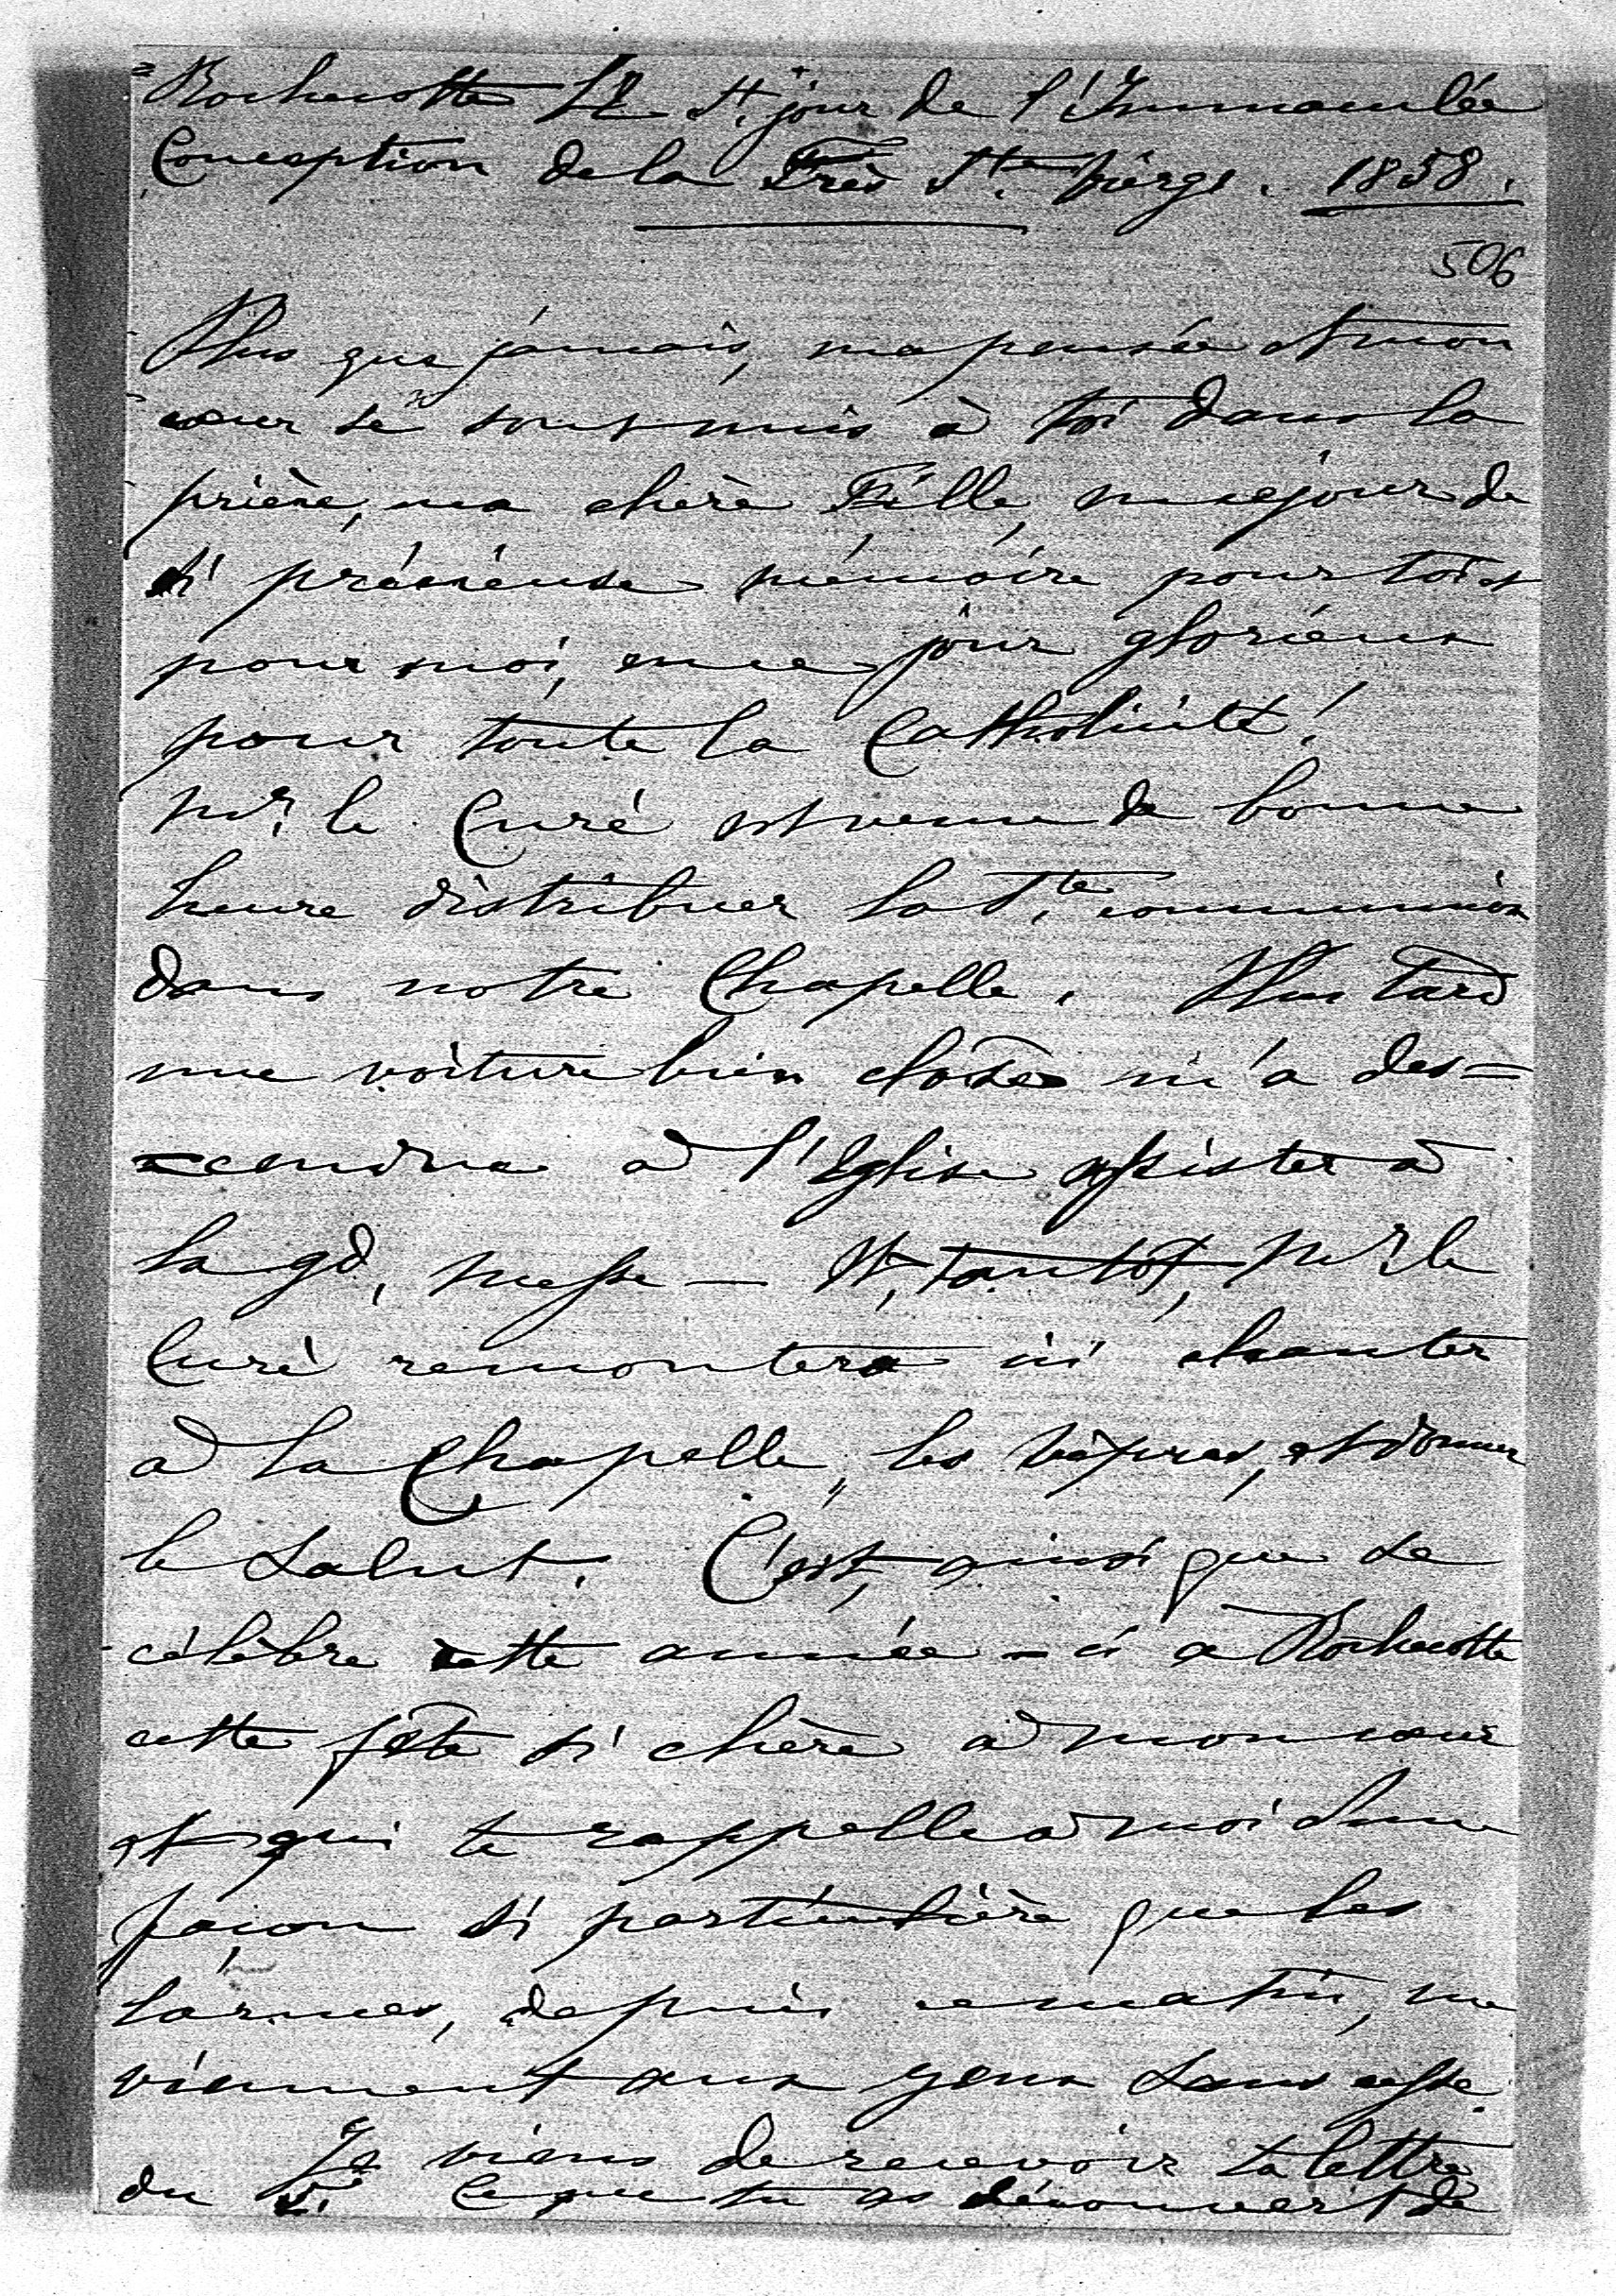 Rochecotte Le St. jour de l'Immaculée
Conception de la Très Ste. Vierge. 1858.
506
Plus que jamais, ma pensée et mon
cœur se sont unis à toi dans la
prière, ma chère Fille, en ce jour de
si précieuse mémoire pour toi et
pour moi, en ce jour glorieux
pour toute la Catholicité!
Mr. le Curé est venu de bonne
heure distribuer la Ste. communion
dans notre Chapelle. Plus tard
une voiture bien close m'a des=
=cendue à l'Eglise assister à
la gd. messe — Et, tantôt, Mr. le
Curé remontera ici chanter
à la Chapelle, les Vêpres, et donner
le Salut. C'est, ainsi que se
célèbre cette année-ci à Rochecotte
cette fête si chère à mon cœur
et qui te rappelle à moi d'une
façon si particulière que les
larmes, depuis ce matin, me
viennent aux yeux sans cesse.
Je viens de recevoir ta lettre
du Ce que tu as découvert de